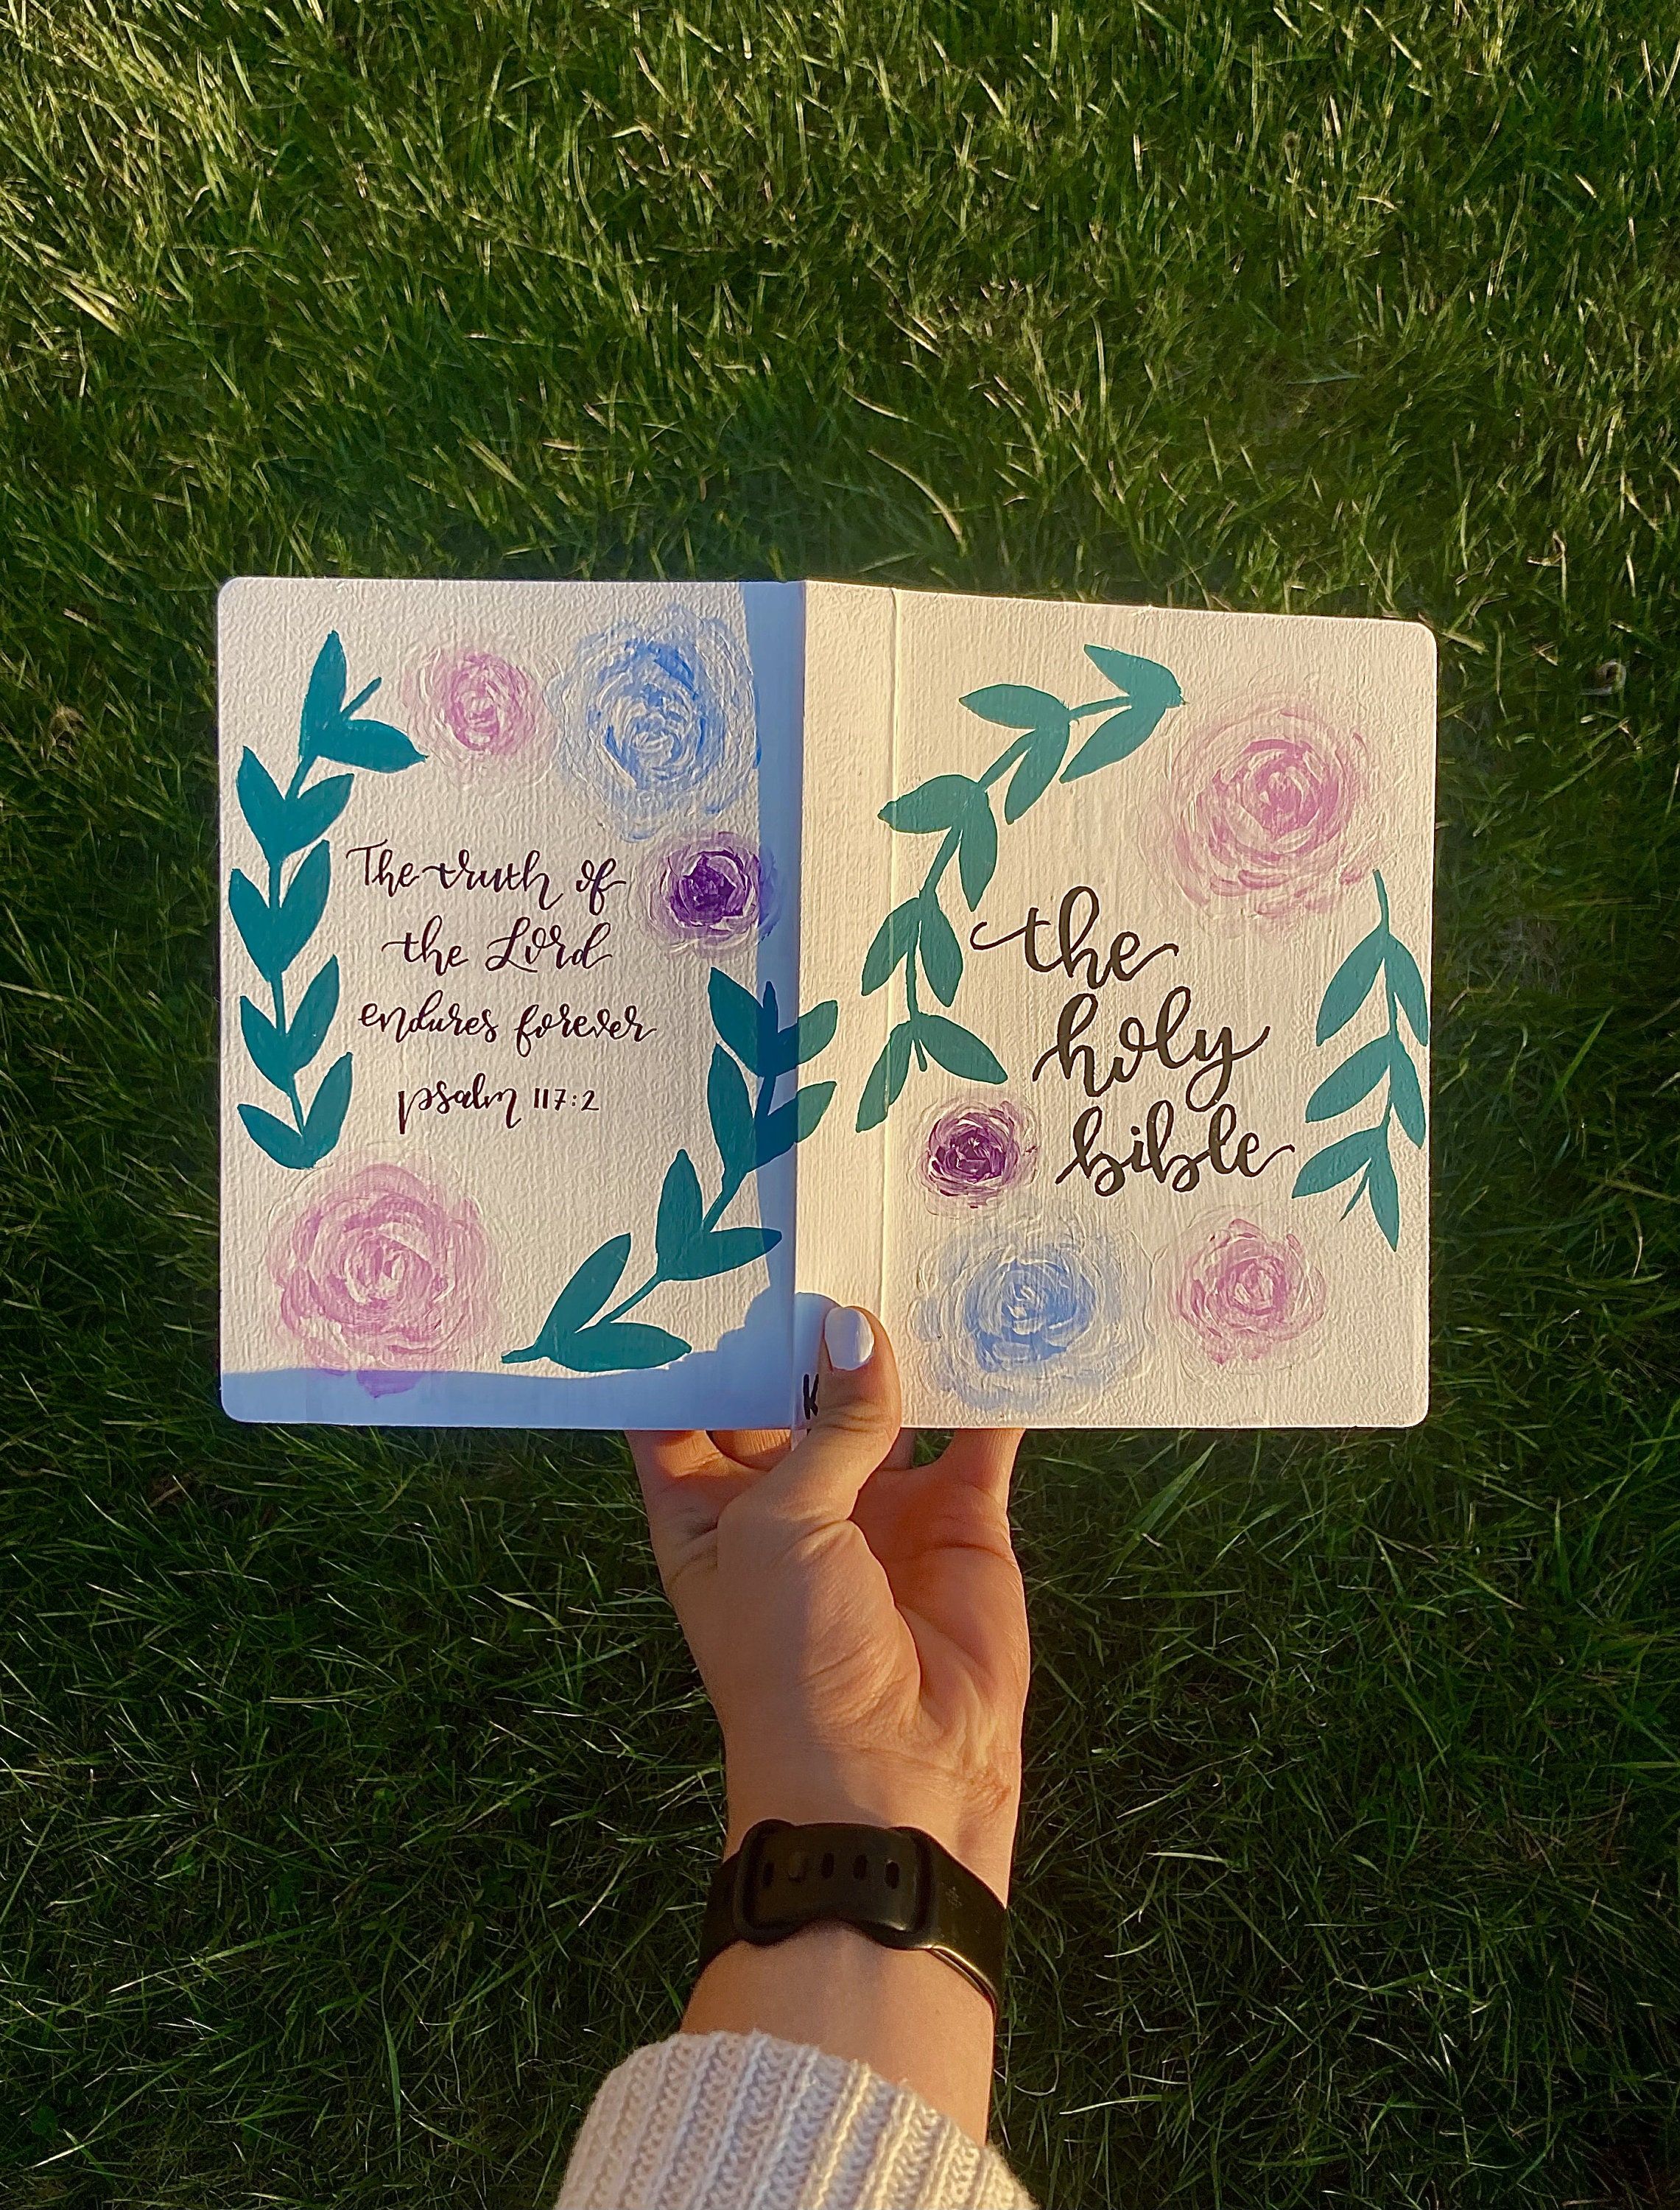 The truth of
the Lord
endures forever
psalm 117:2
K
the
holy
bible